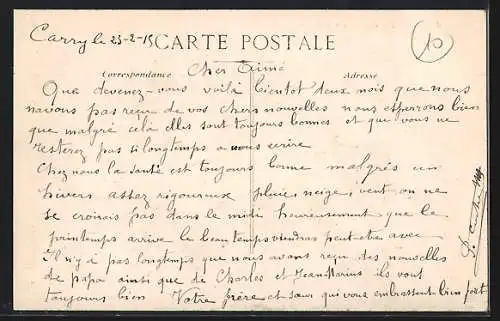 Carry le 23-2-15 CARTE POSTALE
10
Correspondance Cher Aimé Adresse
Que devenez-vous voilà bientot deux mois que nous
navons pas reçu de vos chers nouvelles nous esperrons bien
que malgré celà elles sont toujours bonnes et que vous ne
resterez pas si longtemps a nous ecrire
Chez nous la santé est toujours bonne malgrés un
hivers assez rigoureux pluie, neige, vent on ne
se croirais pas dans le midi heureusement que le
printemps arrive le beau temps viendras peut-etre avec
Il n'y à pas longtemps que nous avons reçu des nouvelles
de papa ainsi que de Charles et Jean Marius ils vont
toujours bien Votre frère et sœur qui vous embrassent bien fort